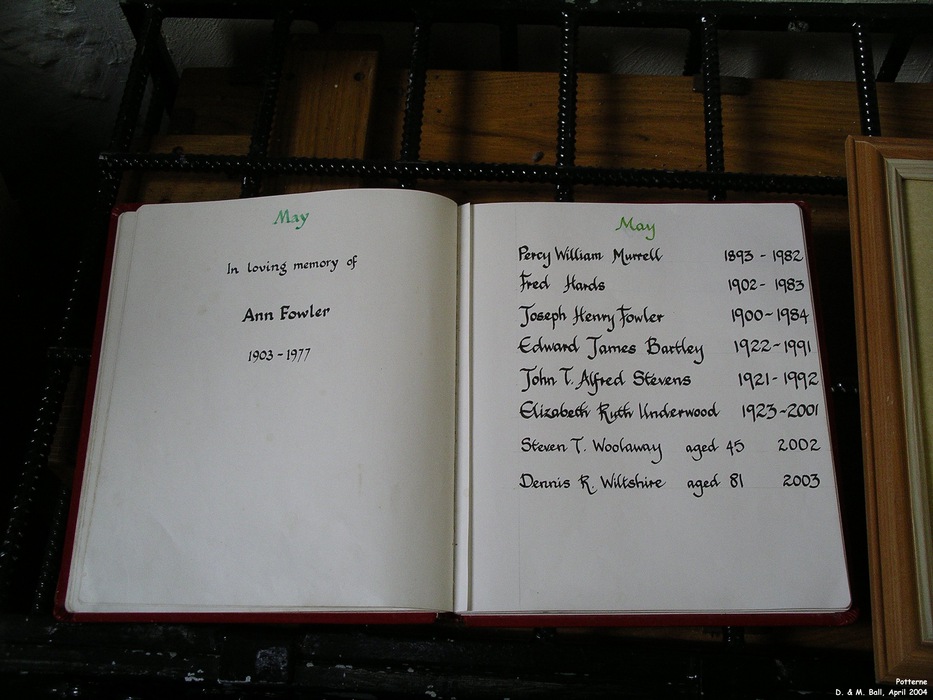 May
In loving memory of
Ann Fowler
1903 - 1977
May
Percy William Murrell 1893 - 1982
Fred Hards 1902 - 1983
Joseph Henry Fowler 1900 - 1984
Edward James Bartley 1922 - 1991
John T. Alfred Stevens 1921 - 1992
Elizabeth Ruth Underwood 1923 - 2001
Steven T. Woolaway aged 45 2002
Dennis R. Wiltshire aged 81 2003
Potterne
D. & M. Ball, April 2004